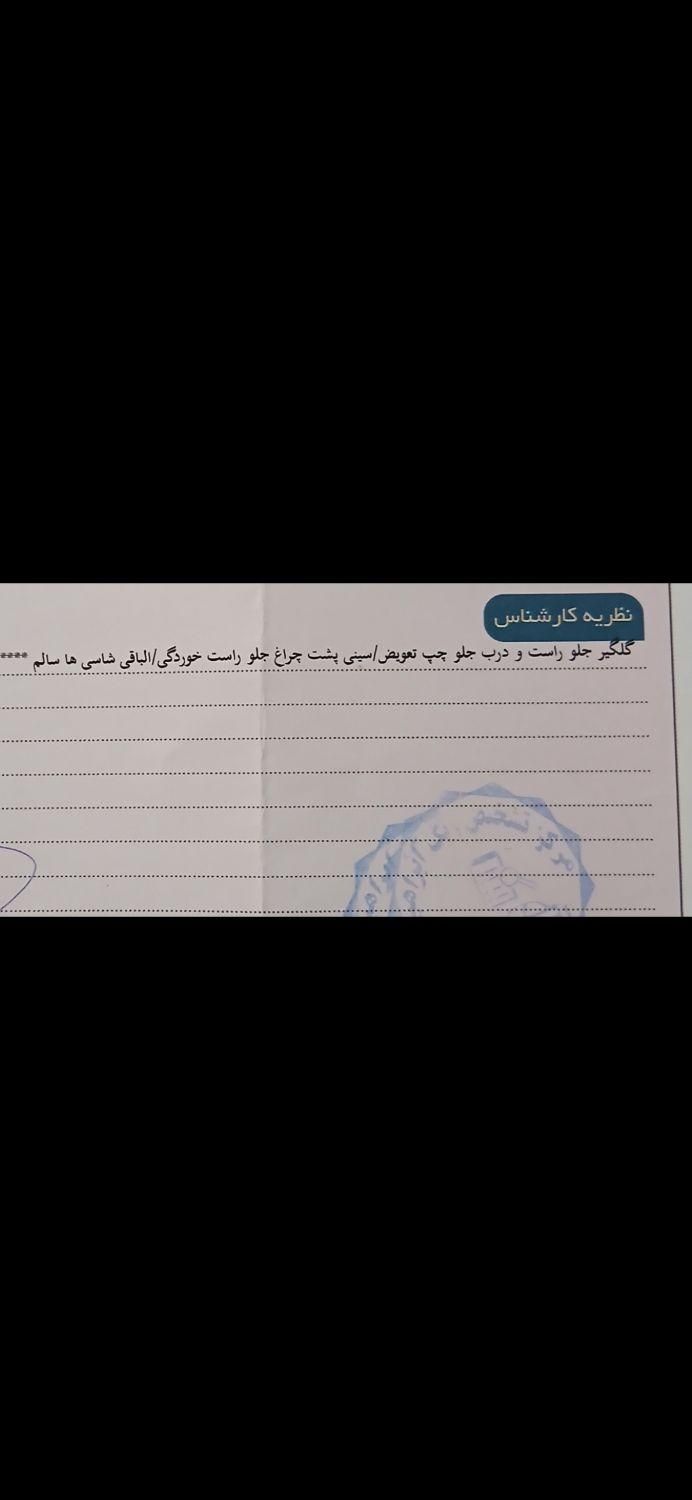 نظریه کارشناس
گلگیر جلو راست و درب جلو چپ تعویض/سینی پشت چراغ جلو راست خوردگی/الباقی شاسی ها سالم ****